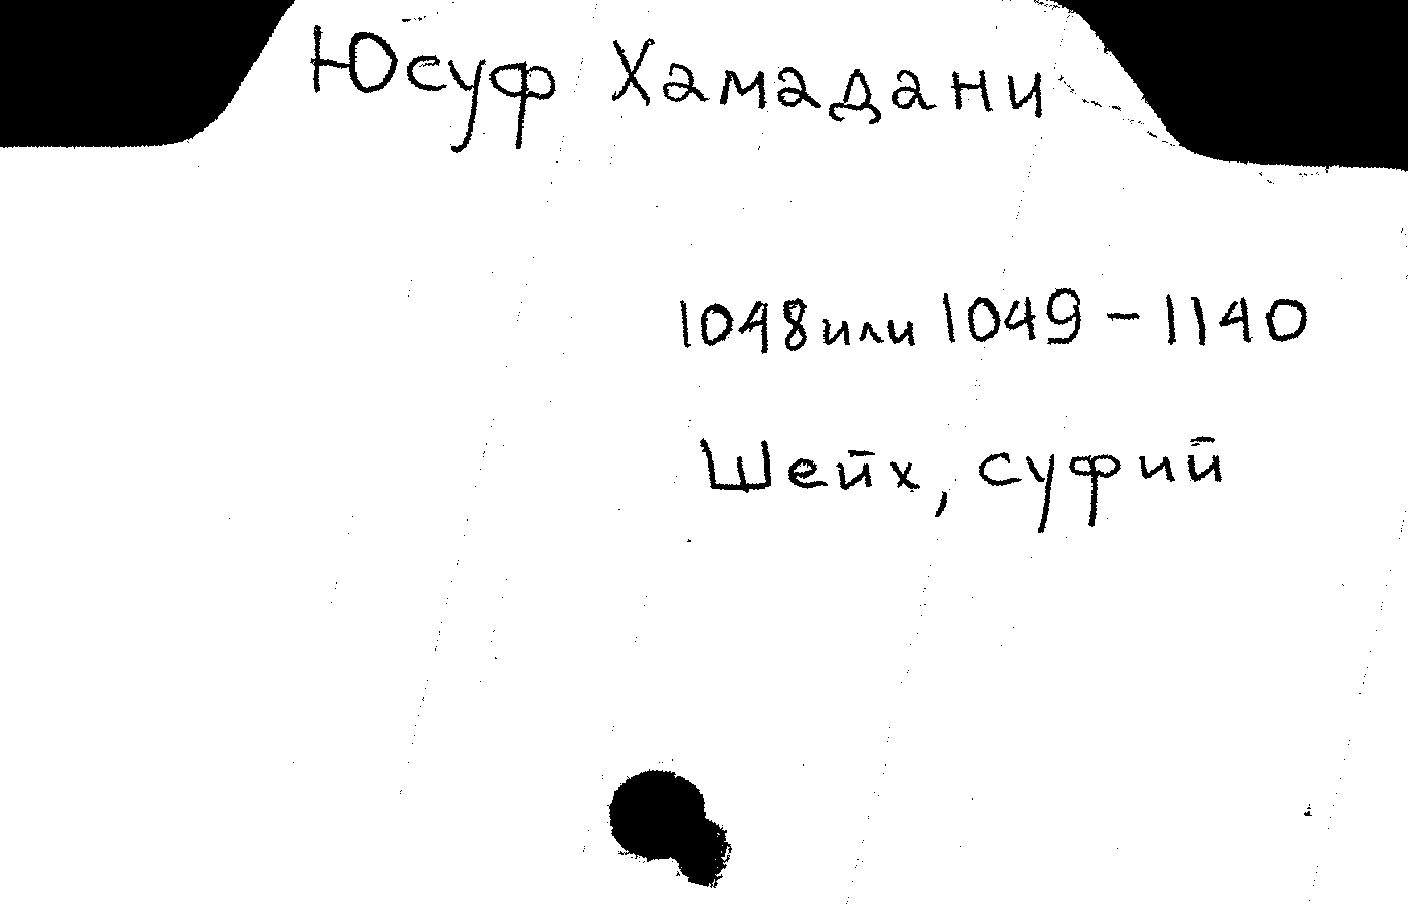 Юсуф Хамадани
1048 или 1049 - 1140
Шейх, суфий